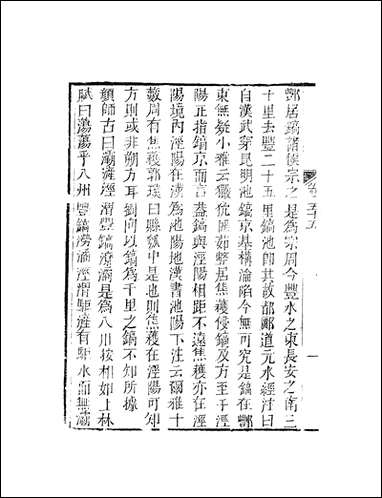 酆居鎬諸侯宗之是爲宗周今豐水之東長安之南三
十里去豐二十五里鎬池卽其故都酈道元水經注曰
自漢武穿昆明池鎬京基構淪陷今無可究是鎬在酆
東無疑小雅云玁狁匪茹整居焦穫侵鎬及方至于涇
陽正指鎬京而言蓋鎬與涇陽相距不遠焦穫亦在涇
陽境內涇陽在漢爲池陽地漢書池陽下注云爾雅十
藪周有焦穫郭璞曰縣瓠中是也則焦穫在涇陽可知
方則或非朔方耳劉向以鎬爲千里之鎬不知所據
顏師古曰灞滻涇渭豐鎬潦潏是爲八川按相如上林
賦曰蕩蕩乎八川豐鎬澇潏涇渭灞滻有 水而無灞
卷五十五
一